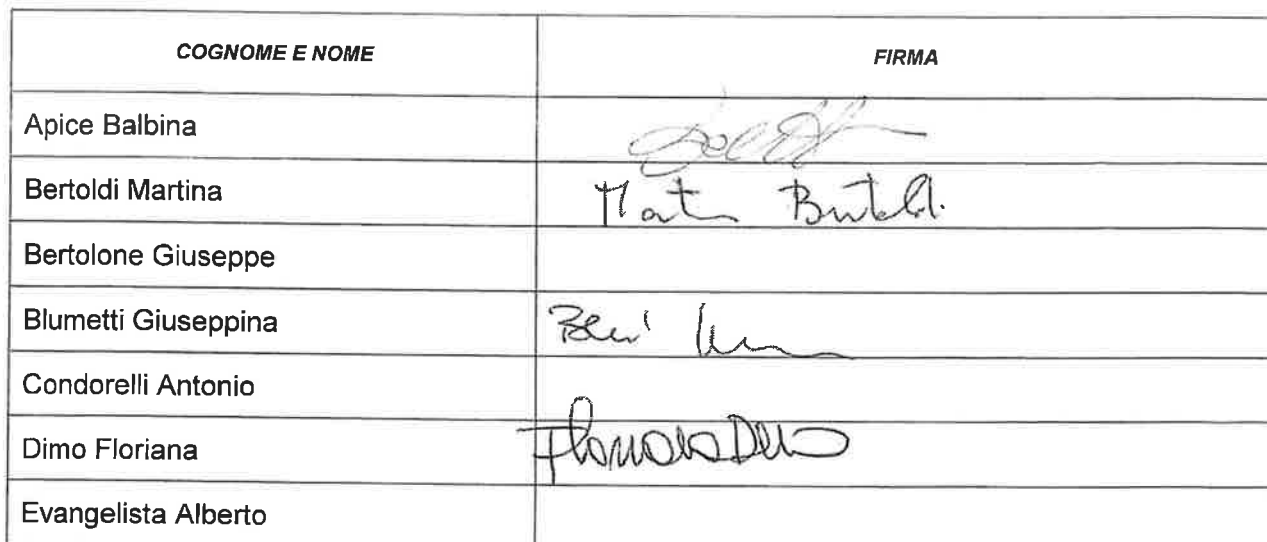 COGNOME E NOME FIRMA
Apice Balbina
Bertoldi Martina Martina Bertoldi
Bertolone Giuseppe
Blumetti Giuseppina
Condorelli Antonio
Dimo Floriana Floriana Dimo
Evangelista Alberto